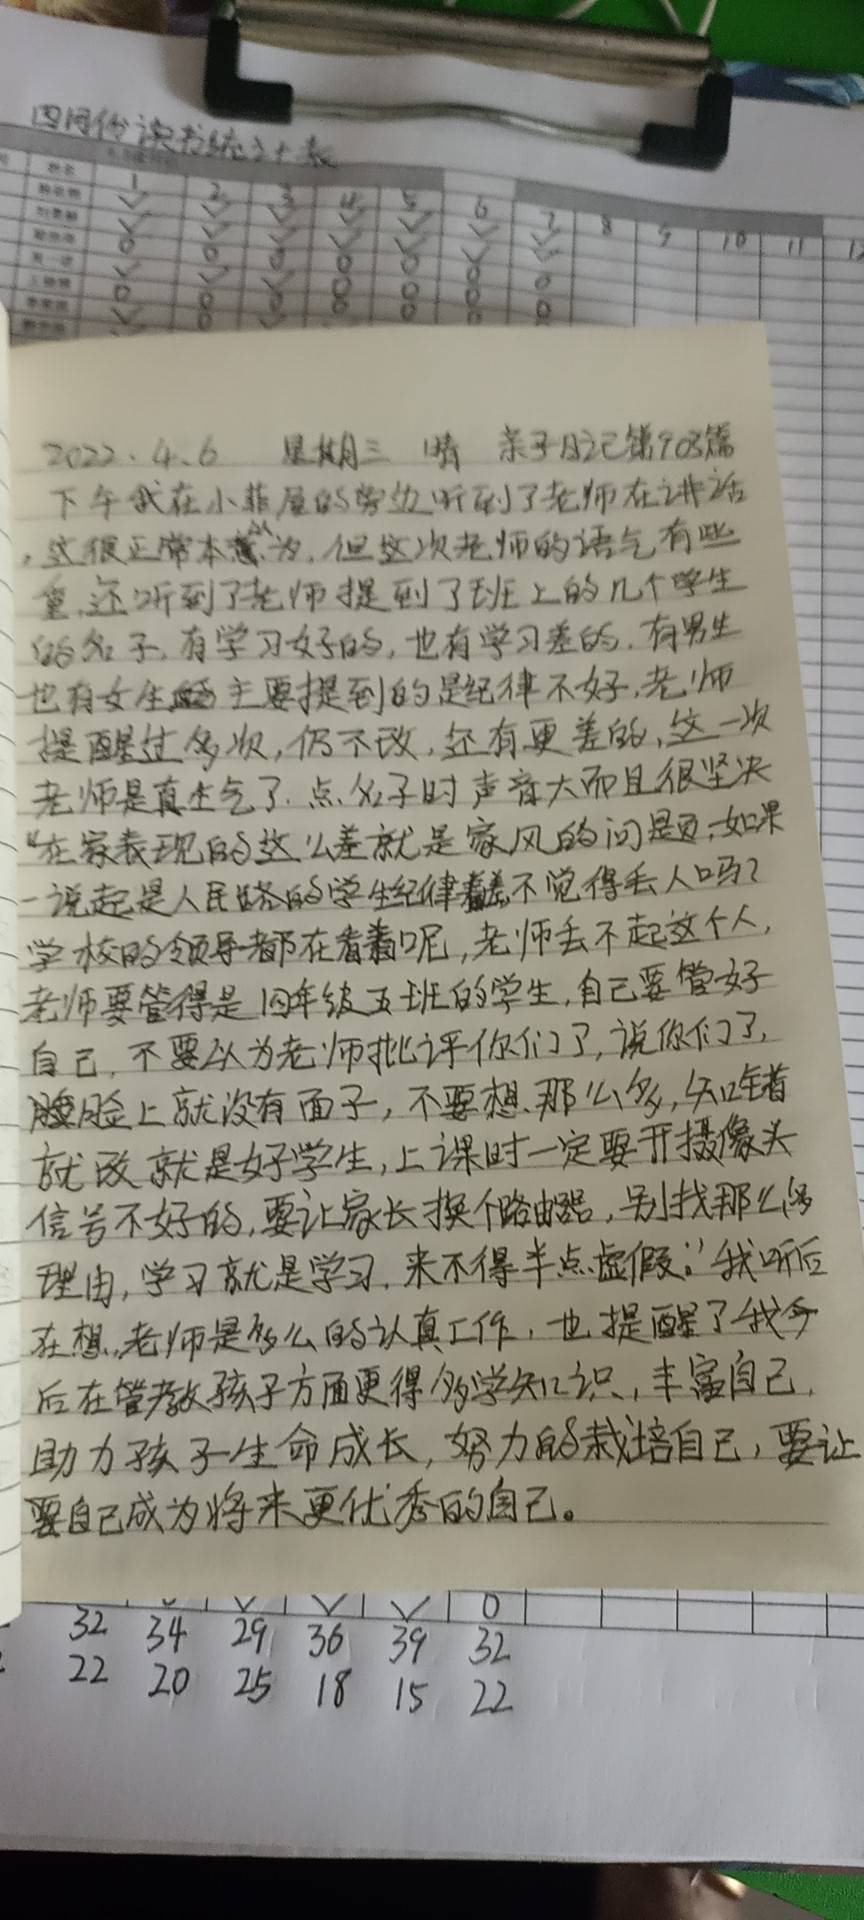 四月份读书统计表
1 2 3 4 5 6 7 8 9 10 11 12
2022.4.6 星期三 晴 亲子日记第908篇
下午我在小菲屋的旁边听到了老师在讲话
，这很正常本以为，但这次老师的语气有些
重，还听到了老师提到了班上的几个学生
的名子，有学习好的，也有学习差的，有男生
也有女生主要提到的是纪律不好，老师
提醒过多次，仍不改，还有更差的，这一次
老师是真生气了，点名子时声音大而且很坚决
“在家表现的这么差就是家风的问题，如果
一说起是人民路的学生纪律差不觉得丢人吗？
学校的领导都在看着呢，老师丢不起这个人，
老师要管得是四年级五班的学生，自己要管好
自己，不要认为老师批评你们了，说你们了，
脸上就没有面子，不要想那么多，知错着
就改就是好学生，上课时一定要开摄像头
信号不好的，要让家长换个路由器，别找那么多
理由，学习就是学习，来不得半点虚假；”我听后
在想，老师是多么的认真工作，也提醒了我今
后在管教孩子方面更得多学知识，丰富自己，
助力孩子生命成长，努力的栽培自己，要让
要自己成为将来更优秀的自己。
32 34 29 36 39 32
22 20 25 18 15 22